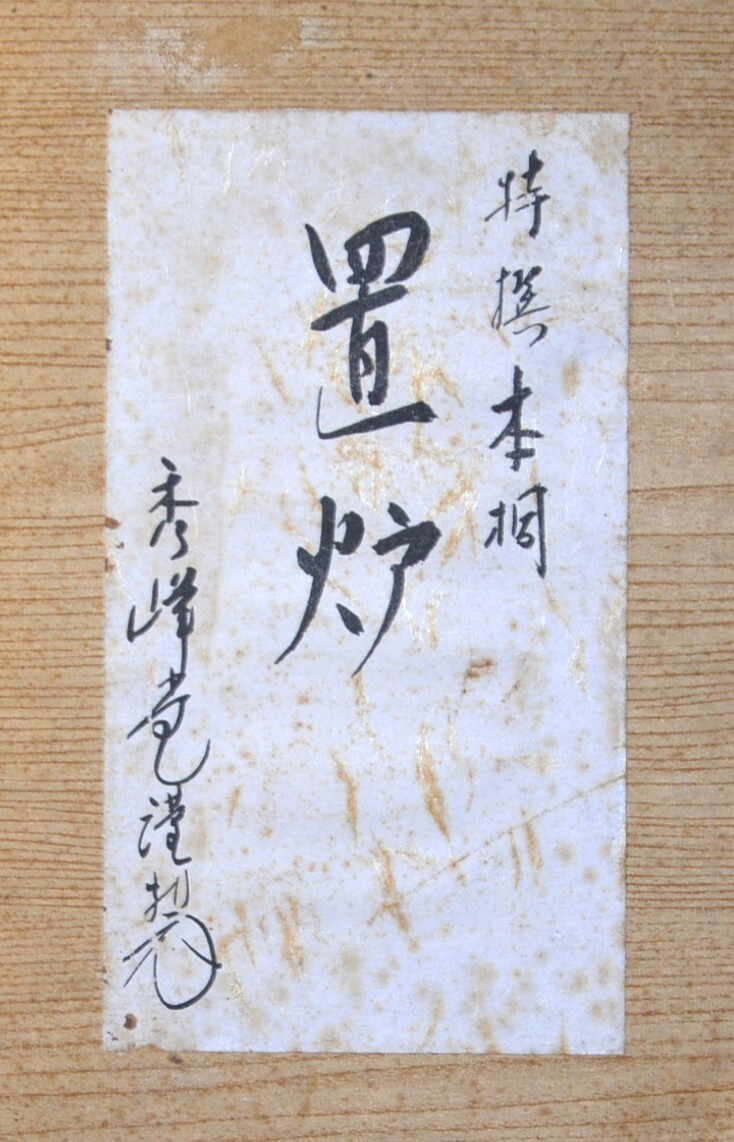 特撰本桐
置炉
秀峰堂謹製